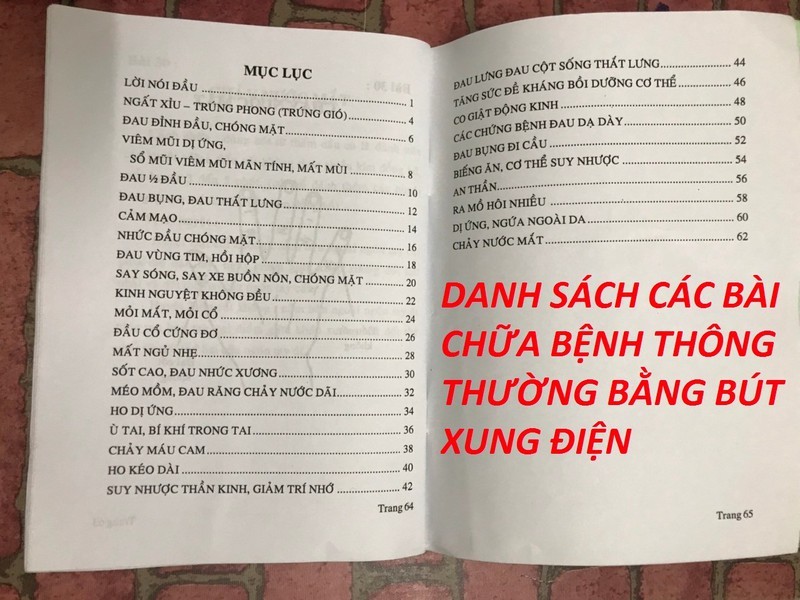 MỤC LỤC
LỜI NÓI ĐẦU ........ 1
NGẤT XỈU – TRÚNG PHONG (TRÚNG GIÓ) ........ 4
ĐAU ĐỈNH ĐẦU, CHÓNG MẶT ........ 6
VIÊM MŨI DỊ ỨNG,
SỔ MŨI VIÊM MŨI MÃN TÍNH, MẤT MÙI ........ 8
ĐAU ½ ĐẦU ........ 10
ĐAU BỤNG, ĐAU THẤT LƯNG ........ 12
CẢM MẠO ........ 14
NHỨC ĐẦU CHÓNG MẶT ........ 16
ĐAU VÙNG TIM, HỒI HỘP ........ 18
SAY SÓNG, SAY XE BUỒN NÔN, CHÓNG MẶT ........ 20
KINH NGUYỆT KHÔNG ĐỀU ........ 22
MỎI MẮT, MỎI CỔ ........ 24
ĐẦU CỔ CỨNG ĐƠ ........ 26
MẤT NGỦ NHẸ ........ 28
SỐT CAO, ĐAU NHỨC XƯƠNG ........ 30
MÉO MỒM, ĐAU RĂNG CHẢY NƯỚC DÃI ........ 32
HO DỊ ỨNG ........ 34
Ù TAI, BÍ KHÍ TRONG TAI ........ 36
CHẢY MÁU CAM ........ 38
HO KÉO DÀI ........ 40
SUY NHƯỢC THẦN KINH, GIẢM TRÍ NHỚ ........ 42
Trang 64
ĐAU LƯNG ĐAU CỘT SỐNG THẤT LƯNG ........ 44
TĂNG SỨC ĐỀ KHÁNG BỒI DƯỠNG CƠ THỂ ........ 46
CO GIẬT ĐỘNG KINH ........ 48
CÁC CHỨNG BỆNH ĐAU DẠ DÀY ........ 50
ĐAU BỤNG ĐI CẦU ........ 52
BIẾNG ĂN, CƠ THỂ SUY NHƯỢC ........ 54
AN THẦN ........ 56
RA MỒ HÔI NHIỀU ........ 58
DỊ ỨNG, NGỨA NGOÀI DA ........ 60
CHẢY NƯỚC MẮT ........ 62
DANH SÁCH CÁC BÀI
CHỮA BỆNH THÔNG
THƯỜNG BẰNG BÚT
XUNG ĐIỆN
Trang 65